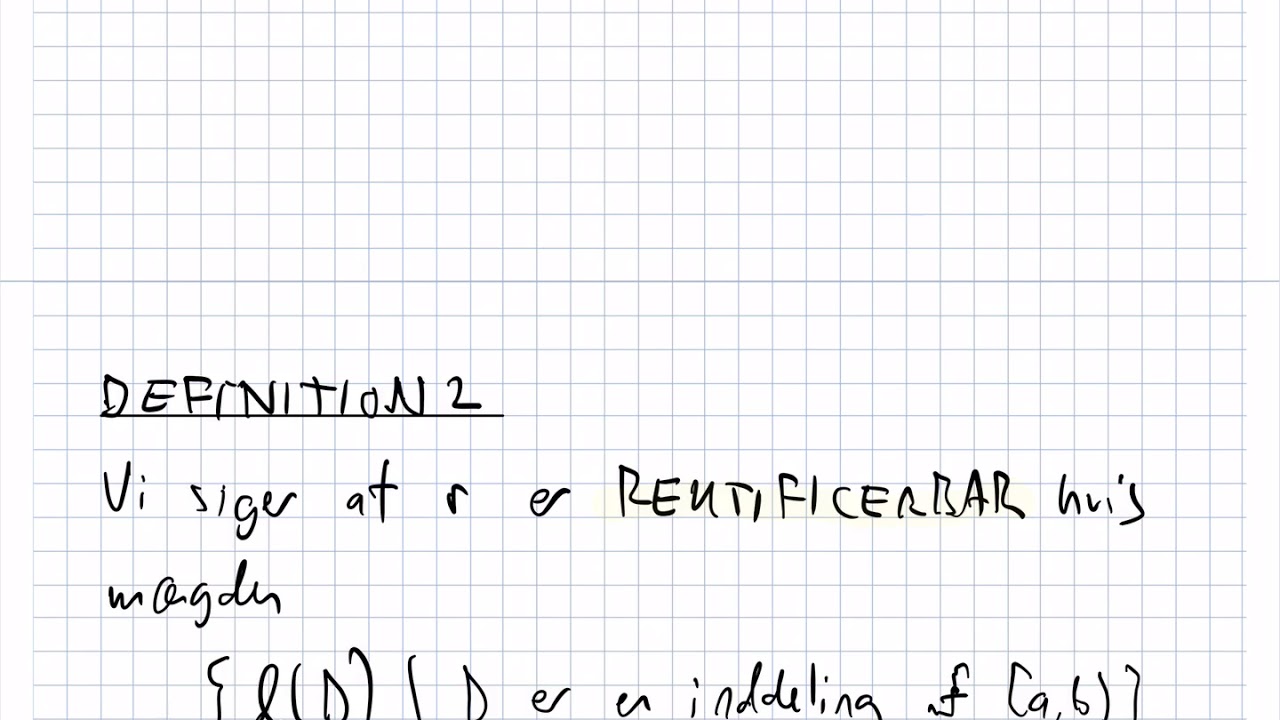 DEFINITION 2
Vi siger at r er REKTIFICERBAR hvis
mængden
{l(D) | D er en inddeling af [a,b]}